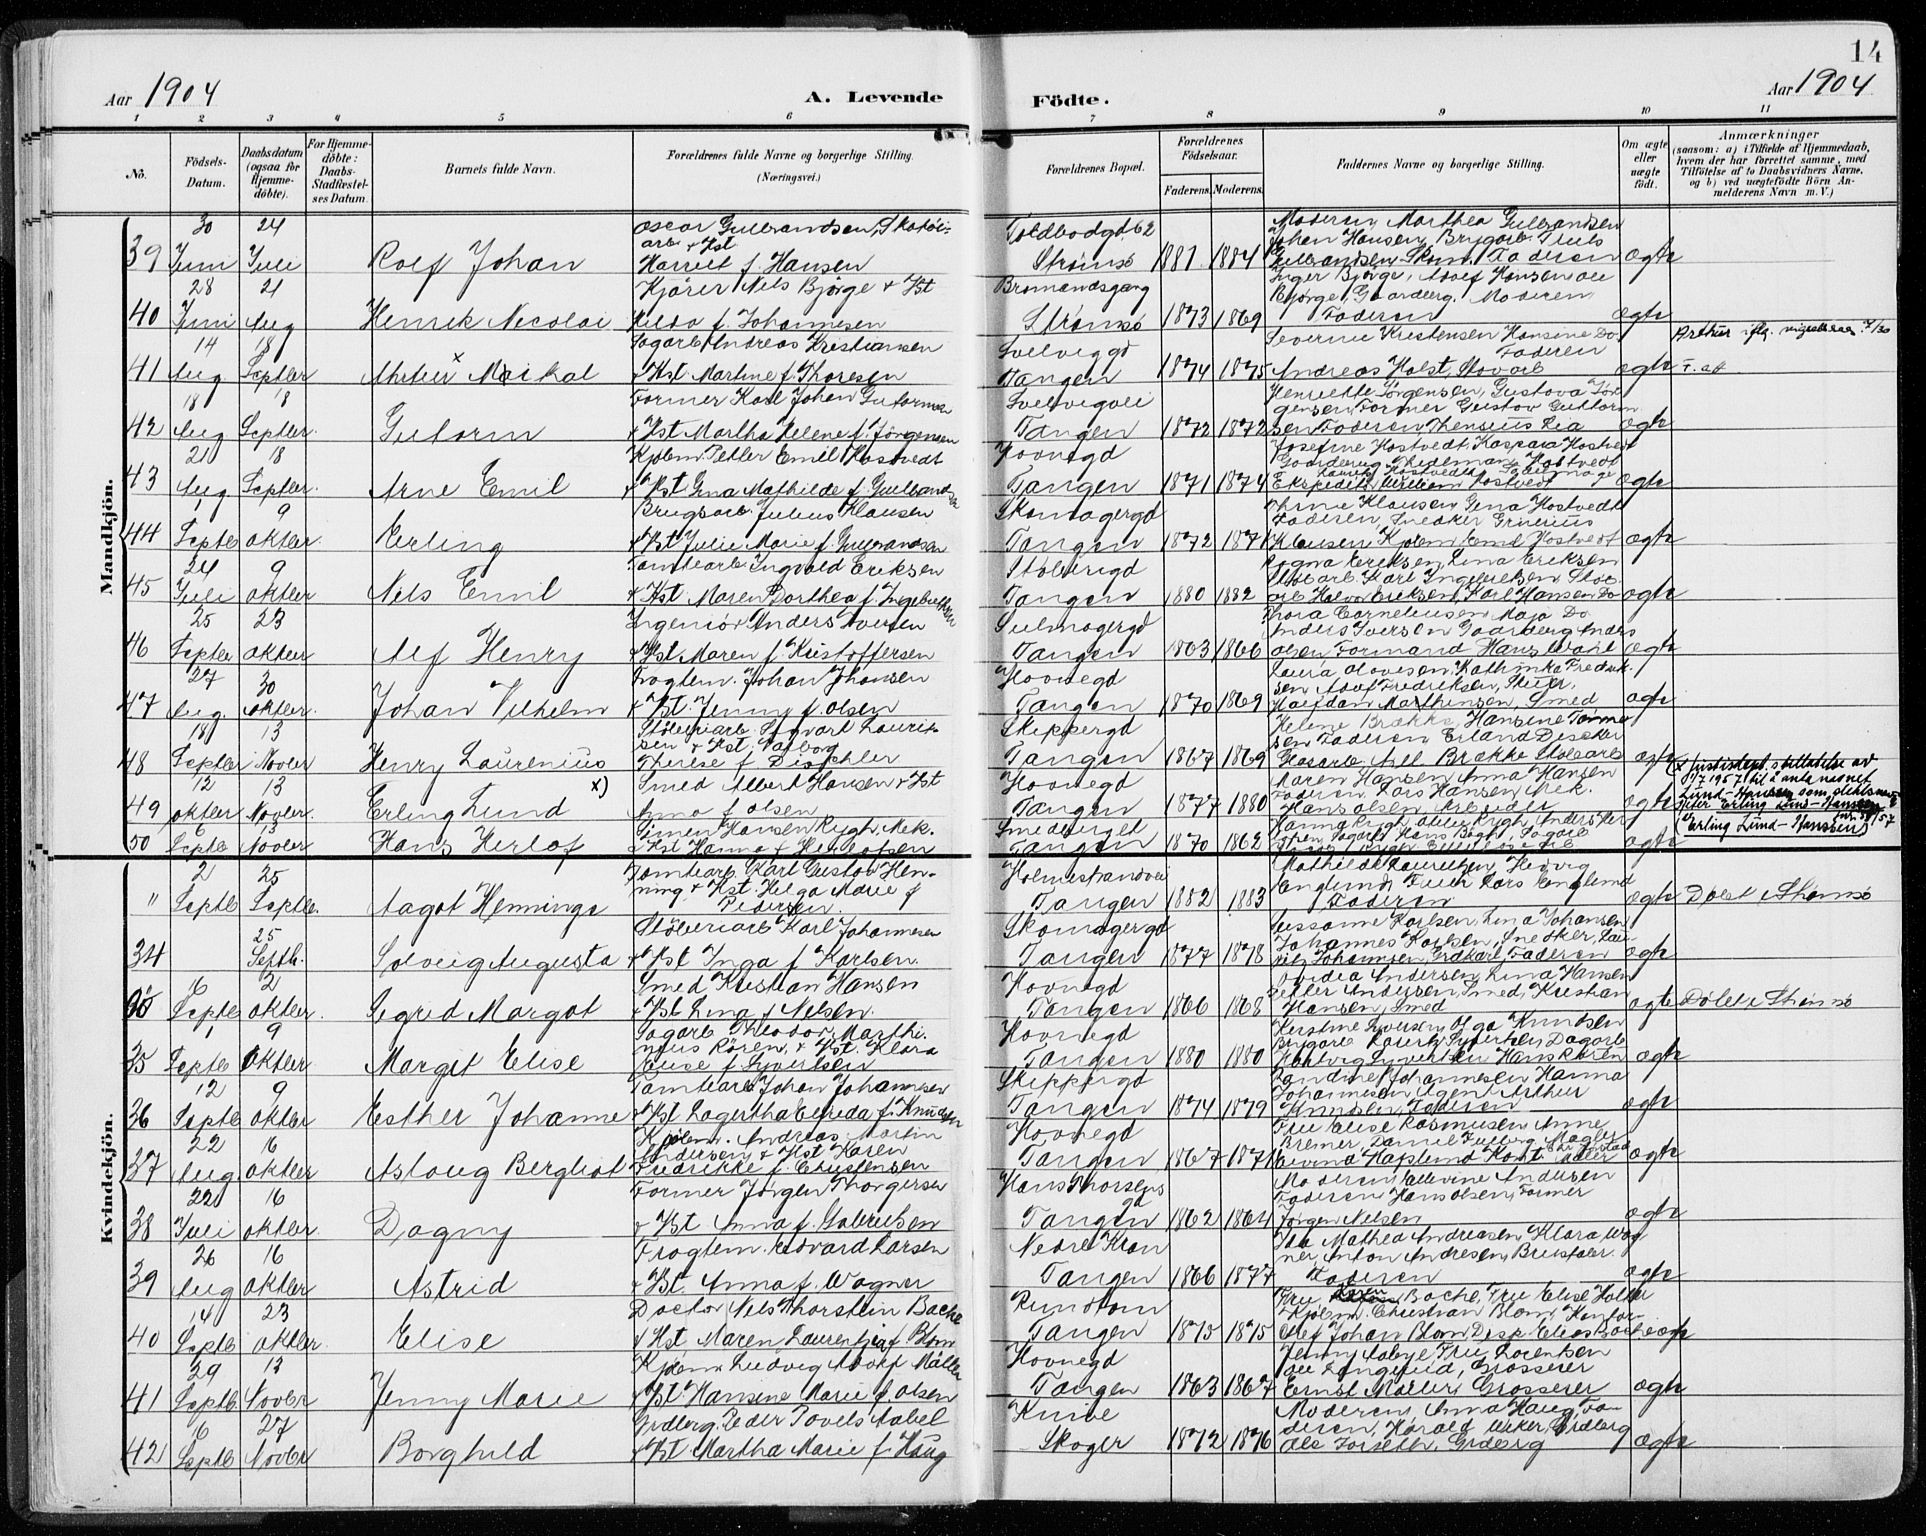 14
Aar 1904
A. Levende
Födte.
Aar 1904
1 2 3 4 5 6 7 8 9 10 11
No.
Födsels-
Datum.
Daabsdatum
(ogsaa for
Hjemme-
döbte).
For Hjemme-
döbte:
Daabs-
Stadfæstel-
ses Datum.
Barnets fulde Navn.
Forældrenes fulde Navne og borgerlige Stilling.
(Næringsvei.)
Forældrenes Bopæl.
Forældrenes
Födselsaar.
Faderens. Moderens.
Faddernes Navne og borgerlige Stilling.
Om ægte
eller
uægte
født.
Anmærkninger
(saasom: a) i Tilfælde af Hjemmedaab,
hvem der har forrettet samme, med
Tilföielse af to Daabsvidners Navne,
og b) ved uægtefödte Börn An-
melderens Navn m. V.)
Mandkjön.
39 30 Juni 24 Juli Rolf Johan
Oscar Gulbrandsen, Skotöi-
arb. & Hst
Harriet f. Hansen
Toldbodgd. 62
Strömsö 1881 1884
Moderen, Marthea Gulbrandsen
Johan Hansen, Brygarb.
Gulbrandsen Skom. Faderen ægte
40 28 Juni 21 Aug Henrik Nicolai
Kjörer Nils Bjørge & Hst
Hilda f. Johannesen
Bromandsgang
Strömsö 1873 1869
Inger Bjørge, Adolf Hansen
Bjørge, Gaardbrg. Moderen
Faderen ægte
41 14 Aug 18 Septbr Arthur x Meikal
Sagarb Andreas Kristiansen
& Hst. Martine f. Thoresen
Svelviggd
Tangen 1874 1875
Severine Kristensen Hansine Do
Faderen
Andreas Holst, Stovarb ægte
Arthur iflg.
42 18 Aug 18 Septbr. Gutorm
Former Karl Johan Gutormsen
& Hst Martha Helene f. Jörgensen
Svelvigvei
Tangen 1872 1872
Henriette Jörgensen, Gustava Jör-
gensen, Former Gustav Guttorm
sen Faderen Thensius Lia ægte
43 21 Aug 18 Septbr. Arne Emil
Kjolem. Petter Emil Hostvedt
& Hst Gina Mathilde f. Gulbrandsen
Hovnegd
Tangen 1871 1874
Josefine Hostvedt, Kaspara Hostvedt
ægte
44 1 Septb 9 oktbr. Erling
Brugsarb. Julius Klausen
& Hst Julie Marie f. Gulbrandsen
Skomagergd
Tangen 1872 1871
Thrine Klausen, Gina Hostvedt
Faderen, Snedker Grinius
Klausen, Kjolem Emil Hostvedt ægte
45 24 Juli 9 oktbr Nils Emil
Tomtearb. Ingvald Eriksen
& Hst. Maren Dorthea f. Ingebretsen
Stöberigd
Tangen 1880 1882
Ragna Eriksen, Lina Eriksen
Stöbarb Karl Ingebretsen, Stöb
arb Halvor Eriksen, Karl Hansen Do ægte
46 25 Septbr 23 oktbr Alf Henry
Ingeniör Anders Iversen
& Hst. Maren f. Kristoffersen
Sulmagergd
Tangen 1863 1866
Thora Corneliusen, Maja Do
Anders Iversen Gaardbrg Anders
Olsen, Formand Hans Wahl ægte
47 27 Aug. 30 oktbr. Johan Vilhelm
Fragtem. Johan Johansen
& Hst. Jenny f. Olsen
Hovnegd
Tangen 1870 1869
Laura Olavesen, Kathinka Fredrik-
sen Adolf Fredriksen, Skuer.
Halfdan Marthinsen, Smed ægte
48 18 Septbr 13 Novbr Henry Laurenius
Stöberiarb. Sigvart Laurit-
sen & Hst. Valborg
Therese f. Dischler
Skippergd
Tangen 1867 1869
Helene Brække, Hansine Tormo
sen Faderen Erland Discher
Glasarb. Axel Brække Stöbarb ægte
49 12 oktbr 13 Novbr. Erling Lund x)
Smed Albert Hansen & Hst
Anna f. Olsen
Hovnegd
Tangen 1877 1880
Maren Hansen, Anna Hansen
Faderen, Lars Hansen, Mek.
Hans Olsen, Arbeider ægte
x Justisdept. stillatelse av
1/7 1957 til å anta navnet
Lund-Hanssen som slektsnavn
heter Erling Lund-Hanssen
(Erling Lund-Hanssen)
50 6 Septb 13 Novbr. Hans Herlof
Simen Hansen Rygh, Mek.
& Hst Hanna f. Herlofsen
Smedberget
Tangen 1870 1862
ægte
Kvindekjön.
" 2 Septb 25 Septb. Aagot Hennings
Tomtearb. Karl Gustav Hen-
ning & Hst. Helga Marie f
Pedersen.
Holmestrandvei
Tangen 1882 1883
Mathilde Lauritsen, Hedvig
Englund, Lars Englund
Faderen ægte Döbt i Strömsö
34 25 Septb. Solveig Augusta
Stöberiarb Karl Johannesen
& Hst Inga f Karlsen.
Skomagergd
Tangen 1877 1878
Susanne Karlsen, Lina Johansen
Johannes Karlsen, Snedker,
Johannsen, Grdkarl Faderen ægte
6 Septb 2 oktbr. Sigrid Margot
Smed Kristian Hansen
& Hst Lina f Nilsen.
Hovnegd
Tangen 1866 1868
Ovidia Andersen, Lina Hansen
Petter Andersen, Smed, Kristian
Hansen, Smed ægte Döbt i Strömsö
35 1 Septb 9 Oktbr Margit Elise
Sagarb Theodor Marthi-
nius Rören, & Hst. Klara
Elise f. Syvertsen
Hovnegd
Tangen 1880 1880
Kirstine Syversen, Olga Knudsen
Brygarb Syvertsen Dagarb
Hartvig Syvertsen Hans Rören ægte
36 12 Septb 9 oktbr Esther Johanne
Tomtearb Johan Johannesen
& Hst Lagertha Elfrida f. Knudsen
Skippergd
Tangen 1874 1879
Randine Johannesen Hanna
Johannesen, Agent Arthur
Knudsen, Faderen ægte
37 22 Aug. 16 oktbr Aslaug Bergliot
Kjolem. Andreas Martin
Andersen & Hst Karen
Fredrikke f. Christensen
Hovnegd
Tangen 1867 1871
Fru Elise Rasmusen Anne
Bremer, Daniel
ægte
38 22 Juli 16 oktbr Dagny
Former Jörgen Thorgersen
& Hst. Anna f. Gabrielsen
Hans Thorsens
gd
Tangen 1862 1864
Moderen, Ellevine Andersen
Faderen Hans Olsen, Former
Jörgen Nilsen ægte
39 26 Aug 16 Oktbr. Astrid
Fragtem. Edvard Larsen
& Hst. Anna f. Wagner
Nedre Kran
Tangen 1866 1877
Ida Mathea Andreasen, Klara Wag
ner, Anton Andresen,
Faderen ægte
40 14 Septb 23 oktbr. Elise
Doctor Nils Thorstein Backe
& Hst. Maren Laurentze f Blom
Rundtom
Tangen 1875 1875
Fru Backe, Fru Elise Holter
Kjolm. Christian Blom, Kontor
Johan Blom, Disp. Elias Backe ægte
41 29 Septb 13 Novbr Jenny Marie
Kjolem Ludvig Adolf Möller
& Hst Hansine Marie f Olsen
Hovnegd
Tangen 1863 1867
Jenny Aabye Fru Lorentsen
Grosserer
Ernst Möller, Grosserer ægte
42 6 Septb 27 Novbr Borghild
Grdbrg. Peder Povels Aabel
& Hst Martha Marie f. Haug
Knive
Skoger 1872 1876
Moderen, Anna Haug, Fa-
deren, Harald Wiker, Grdbrg
Ole Jorseth, Grdbrg ægte